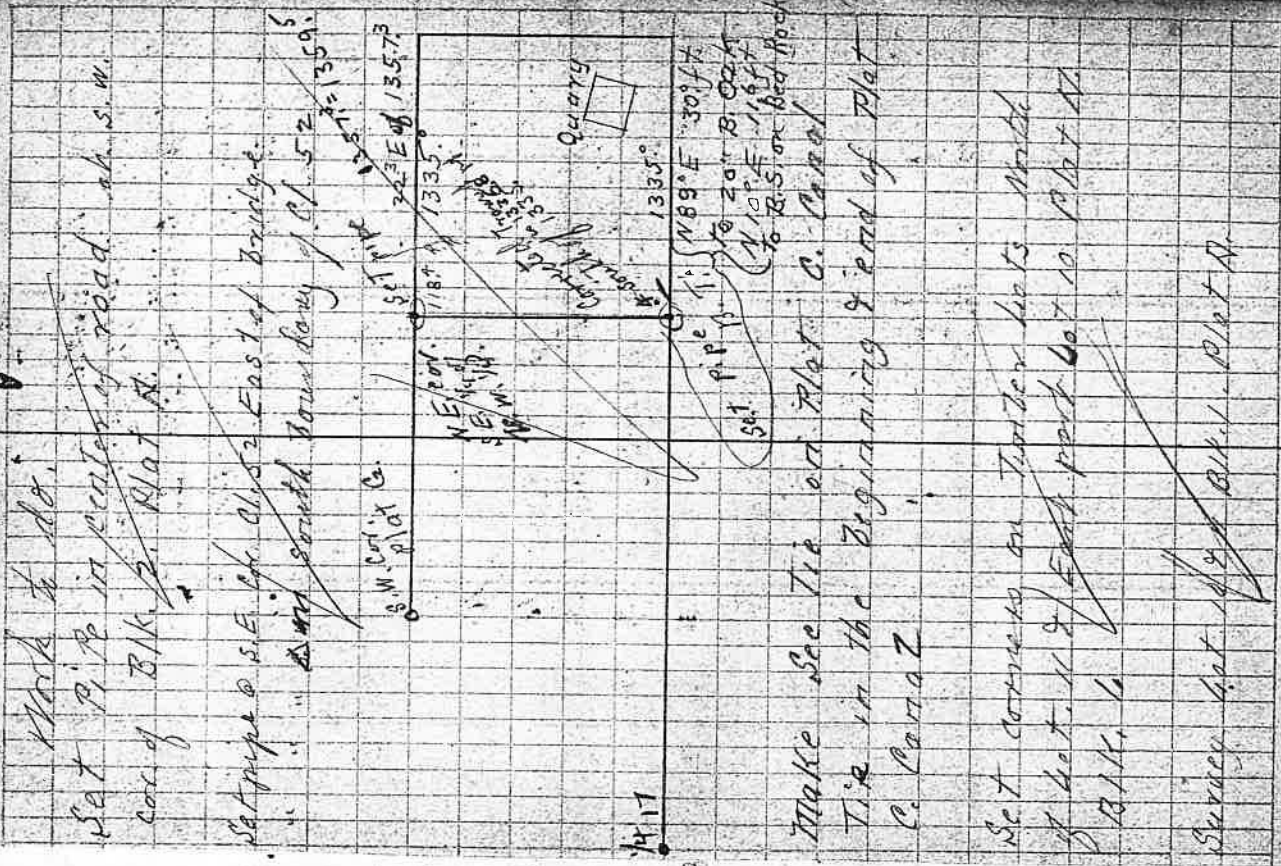 Work to do.
Set Pipe in center of road at s.w.
cor of Blk. 2, Plat A.
Set pipe @ S.E. Cor. Cl. 52 East of Bridge.
" " " on South Boundary of Cl. 52
1357.3 = 1359.5
22.3 E of 1357.3
Set pipe
118.4
1335.0
S.W. Cor.
plat C.
N E cor.
S.E. 1/4 of
N.W. 1/4
Corrected
south
Quarry
1335.0
1417
Set pipe
N 89° E 30.0 ft
to 20" B. Oak
N 10° E 11.6 ft
to B.S. on Bed Rock
Make See Tie on Plat C. Canal
Tie in the Beginning & end of Plat
C. Canal
Set corners on Timber Lots North
of Lot 11 & East part Lot 10 Plat N.
Blk. 6
Survey Lot 1/2 Blk. 1. Plat A.